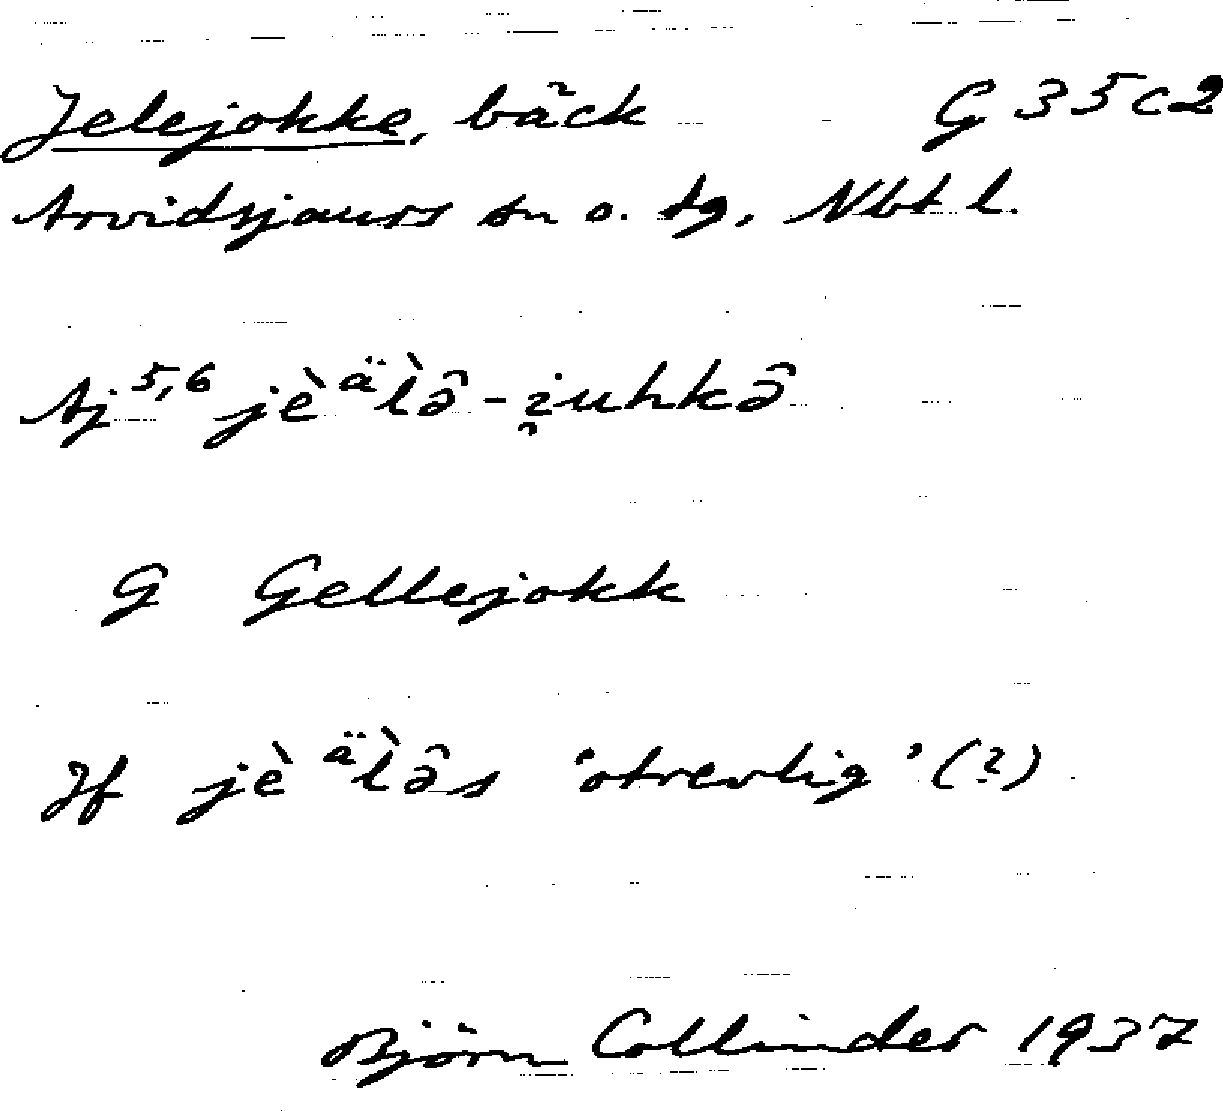 Jelejokke, bäck G 35c2
Arvidsjaurs sn o. tg, Nbt l.
Aj 5,6 jèälə̂̀-i̯uhkə̂
G Gellejokk
Jf jèälə̂̀s 'otrevlig' (?)
Björn Collinder 1937